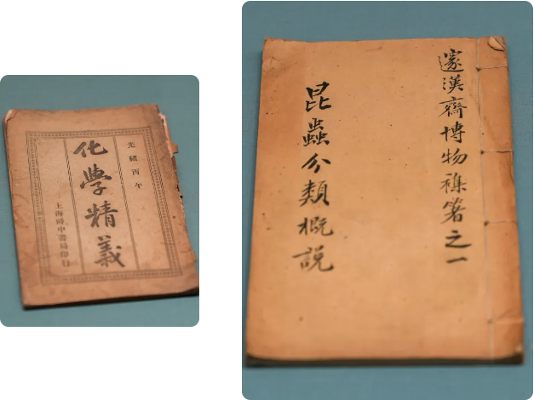 光緒丙午
化學精義
上海時中書局印行
邃漢齋博物襍箸之一
昆蟲分類概說